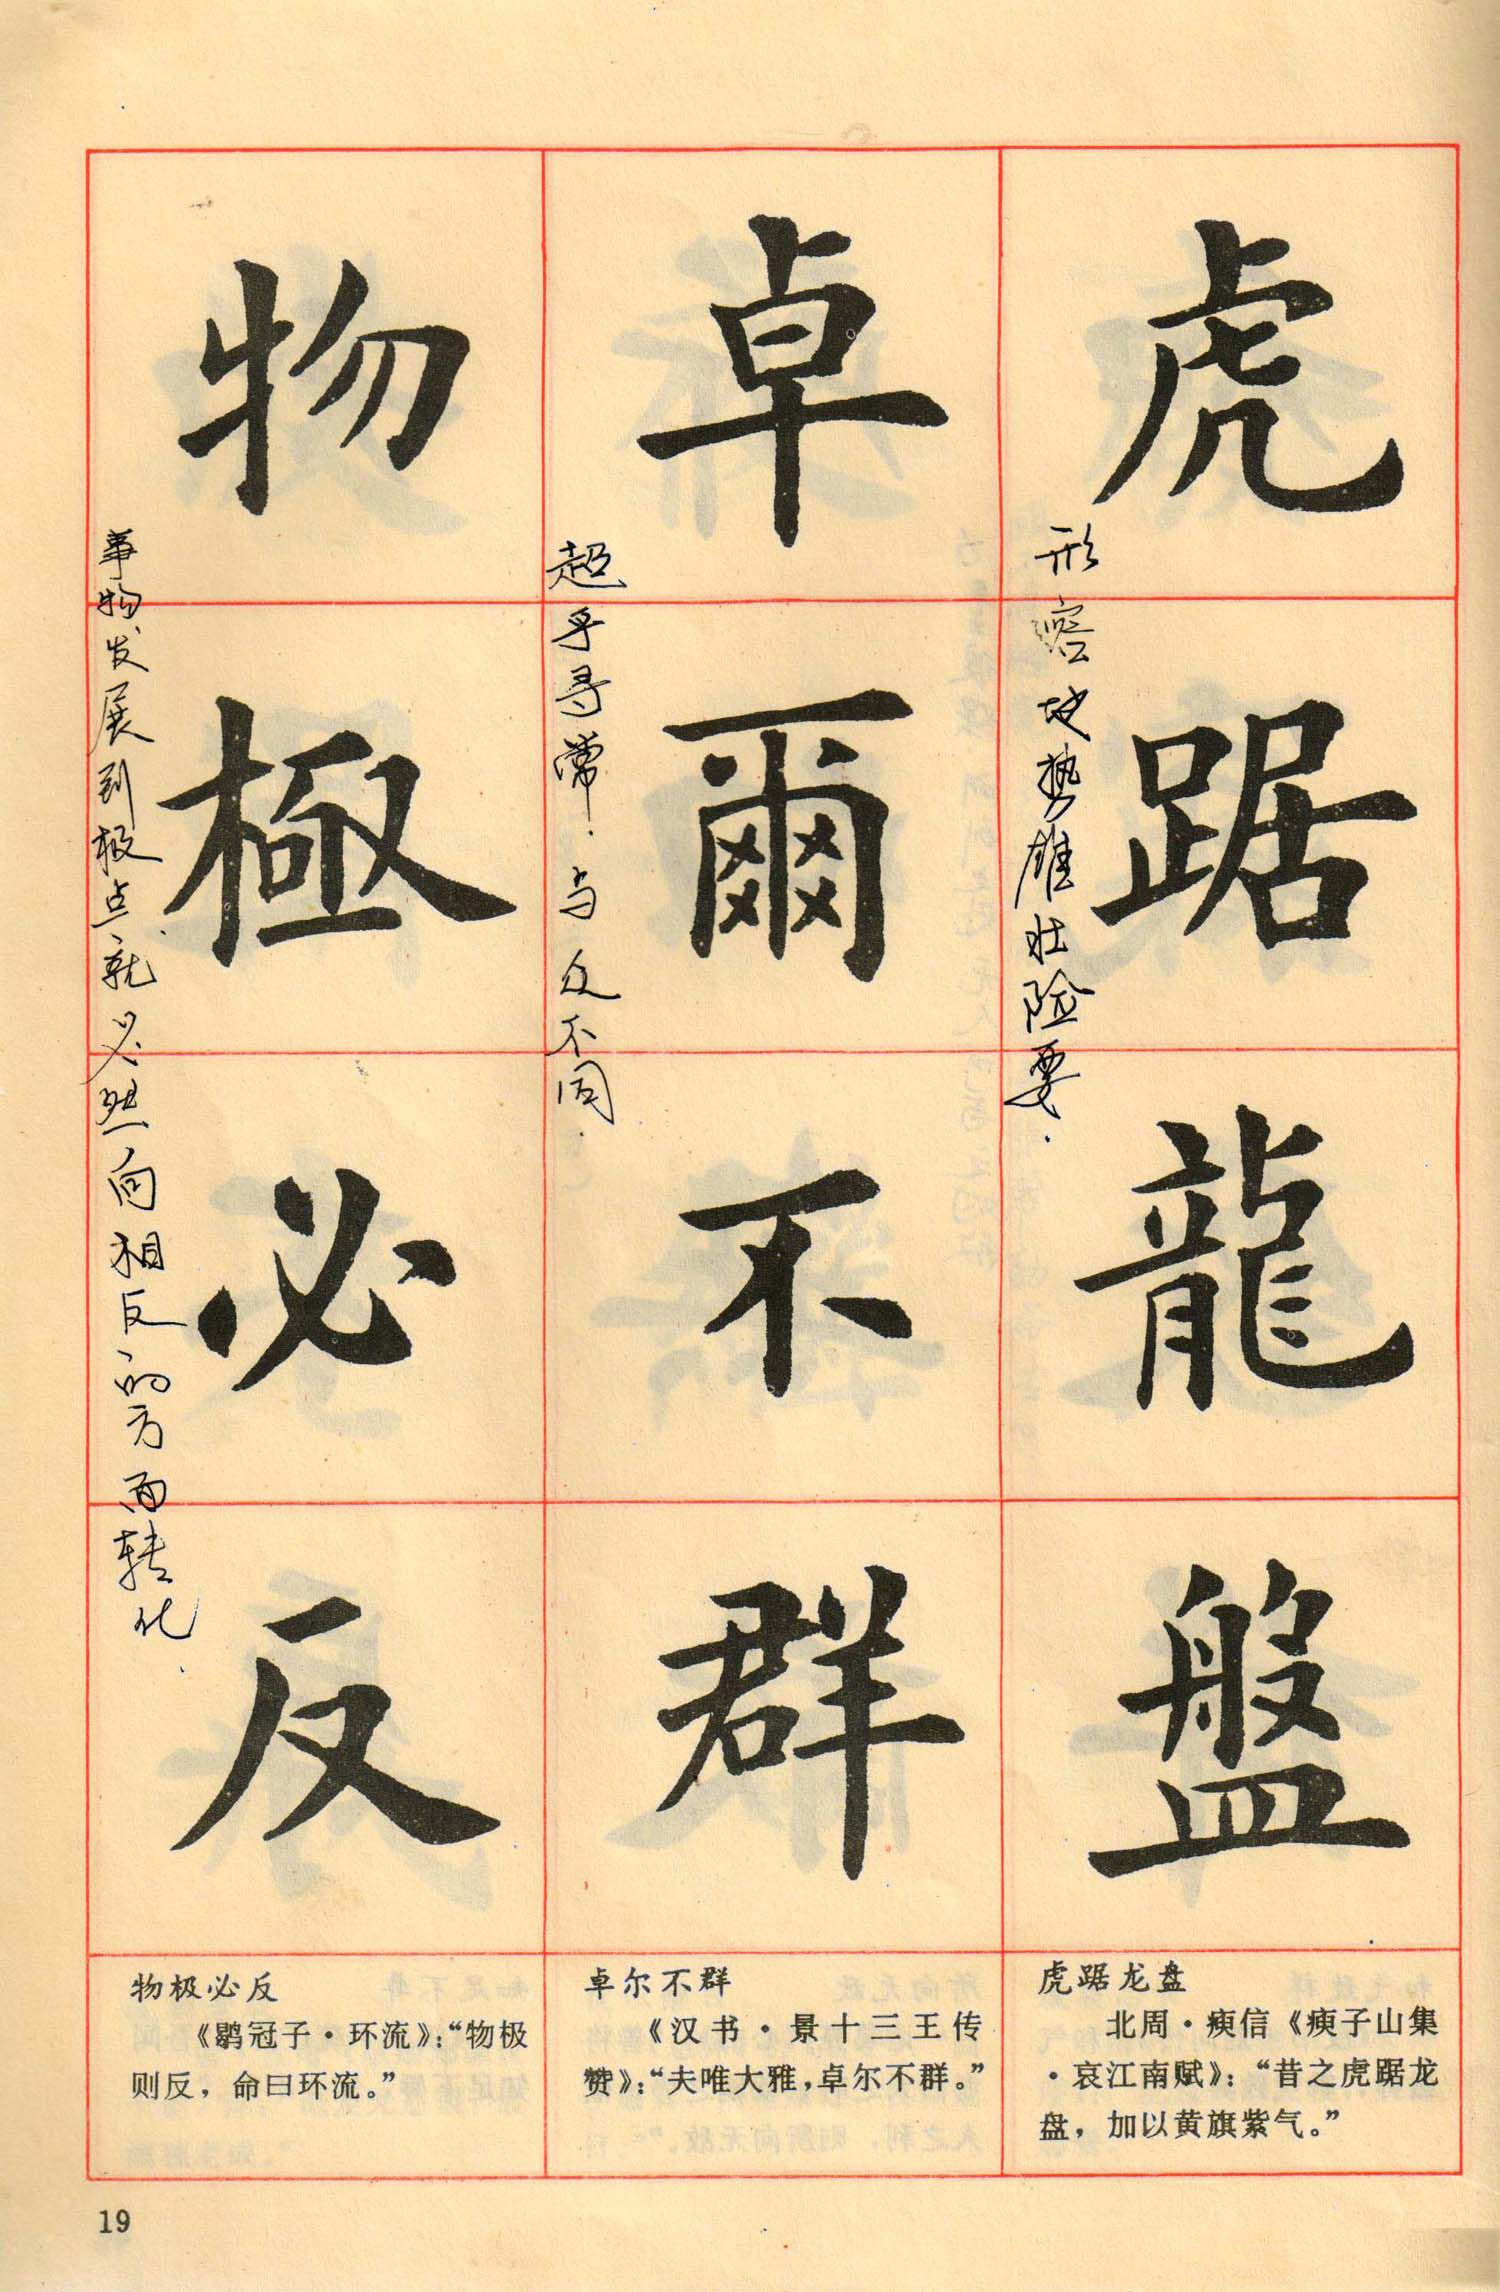 虎踞龍盤
形容地势雄壮险要.
卓爾不群
超乎寻常.与众不同.
物極必反
事物发展到极点就必然向相反的方面转化.
虎踞龙盘
北周·瘐信《瘐子山集
·哀江南赋》：“昔之虎踞龙
盘，加以黄旗紫气。”
卓尔不群
《汉书·景十三王传
赞》：“夫唯大雅，卓尔不群。”
物极必反
《鹖冠子·环流》：“物极
则反，命曰环流。”
19